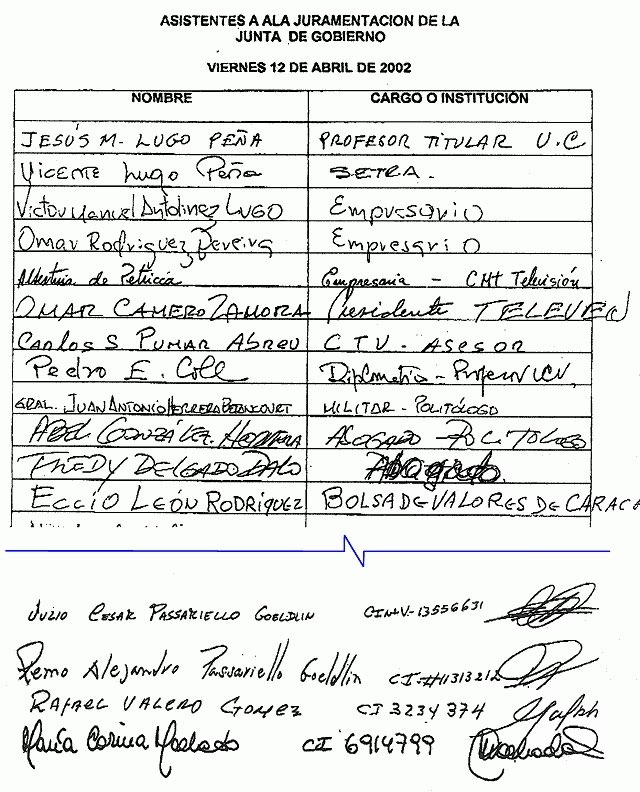 ASISTENTES A ALA JURAMENTACION DE LA
JUNTA DE GOBIERNO
VIERNES 12 DE ABRIL DE 2002
NOMBRE CARGO O INSTITUCIÓN
JESÚS M. LUGO PEÑA PROFESOR TITULAR U.C
Vicente Lugo Peña SETRA.
Victor Manuel Antolinez LUGO Empresario
Omar Rodriguez Pereira Empresario
de Petricca Empresaria - CMT Televisión
OMAR CAMERO ZAMORA Presidente TELEVEN
Carlos S PUMAR ABREU CTV - ASESOR
Pedro E. Coll Diplomático - Profesor UCV,
GRAL. JUAN ANTONIO HERRERA BETANCOURT MILITAR - POLITÓLOGO
ABEL GONZÁLEZ HERRERA ABOGADO - POLITOLOGO
FREDY DELGADO Abogado.
ECCIO LEÓN RODRÍGUEZ BOLSA DE VALORES DE CARACA
JULIO CESAR PASSARIELLO GOELDLIN CI Nº V-13556631
Remo Alejandro Passariello Goeldlin CI #11313212
RAFAEL VALERO GOMEZ CI 3234374
María Corina Machado CI 6914799 Machado